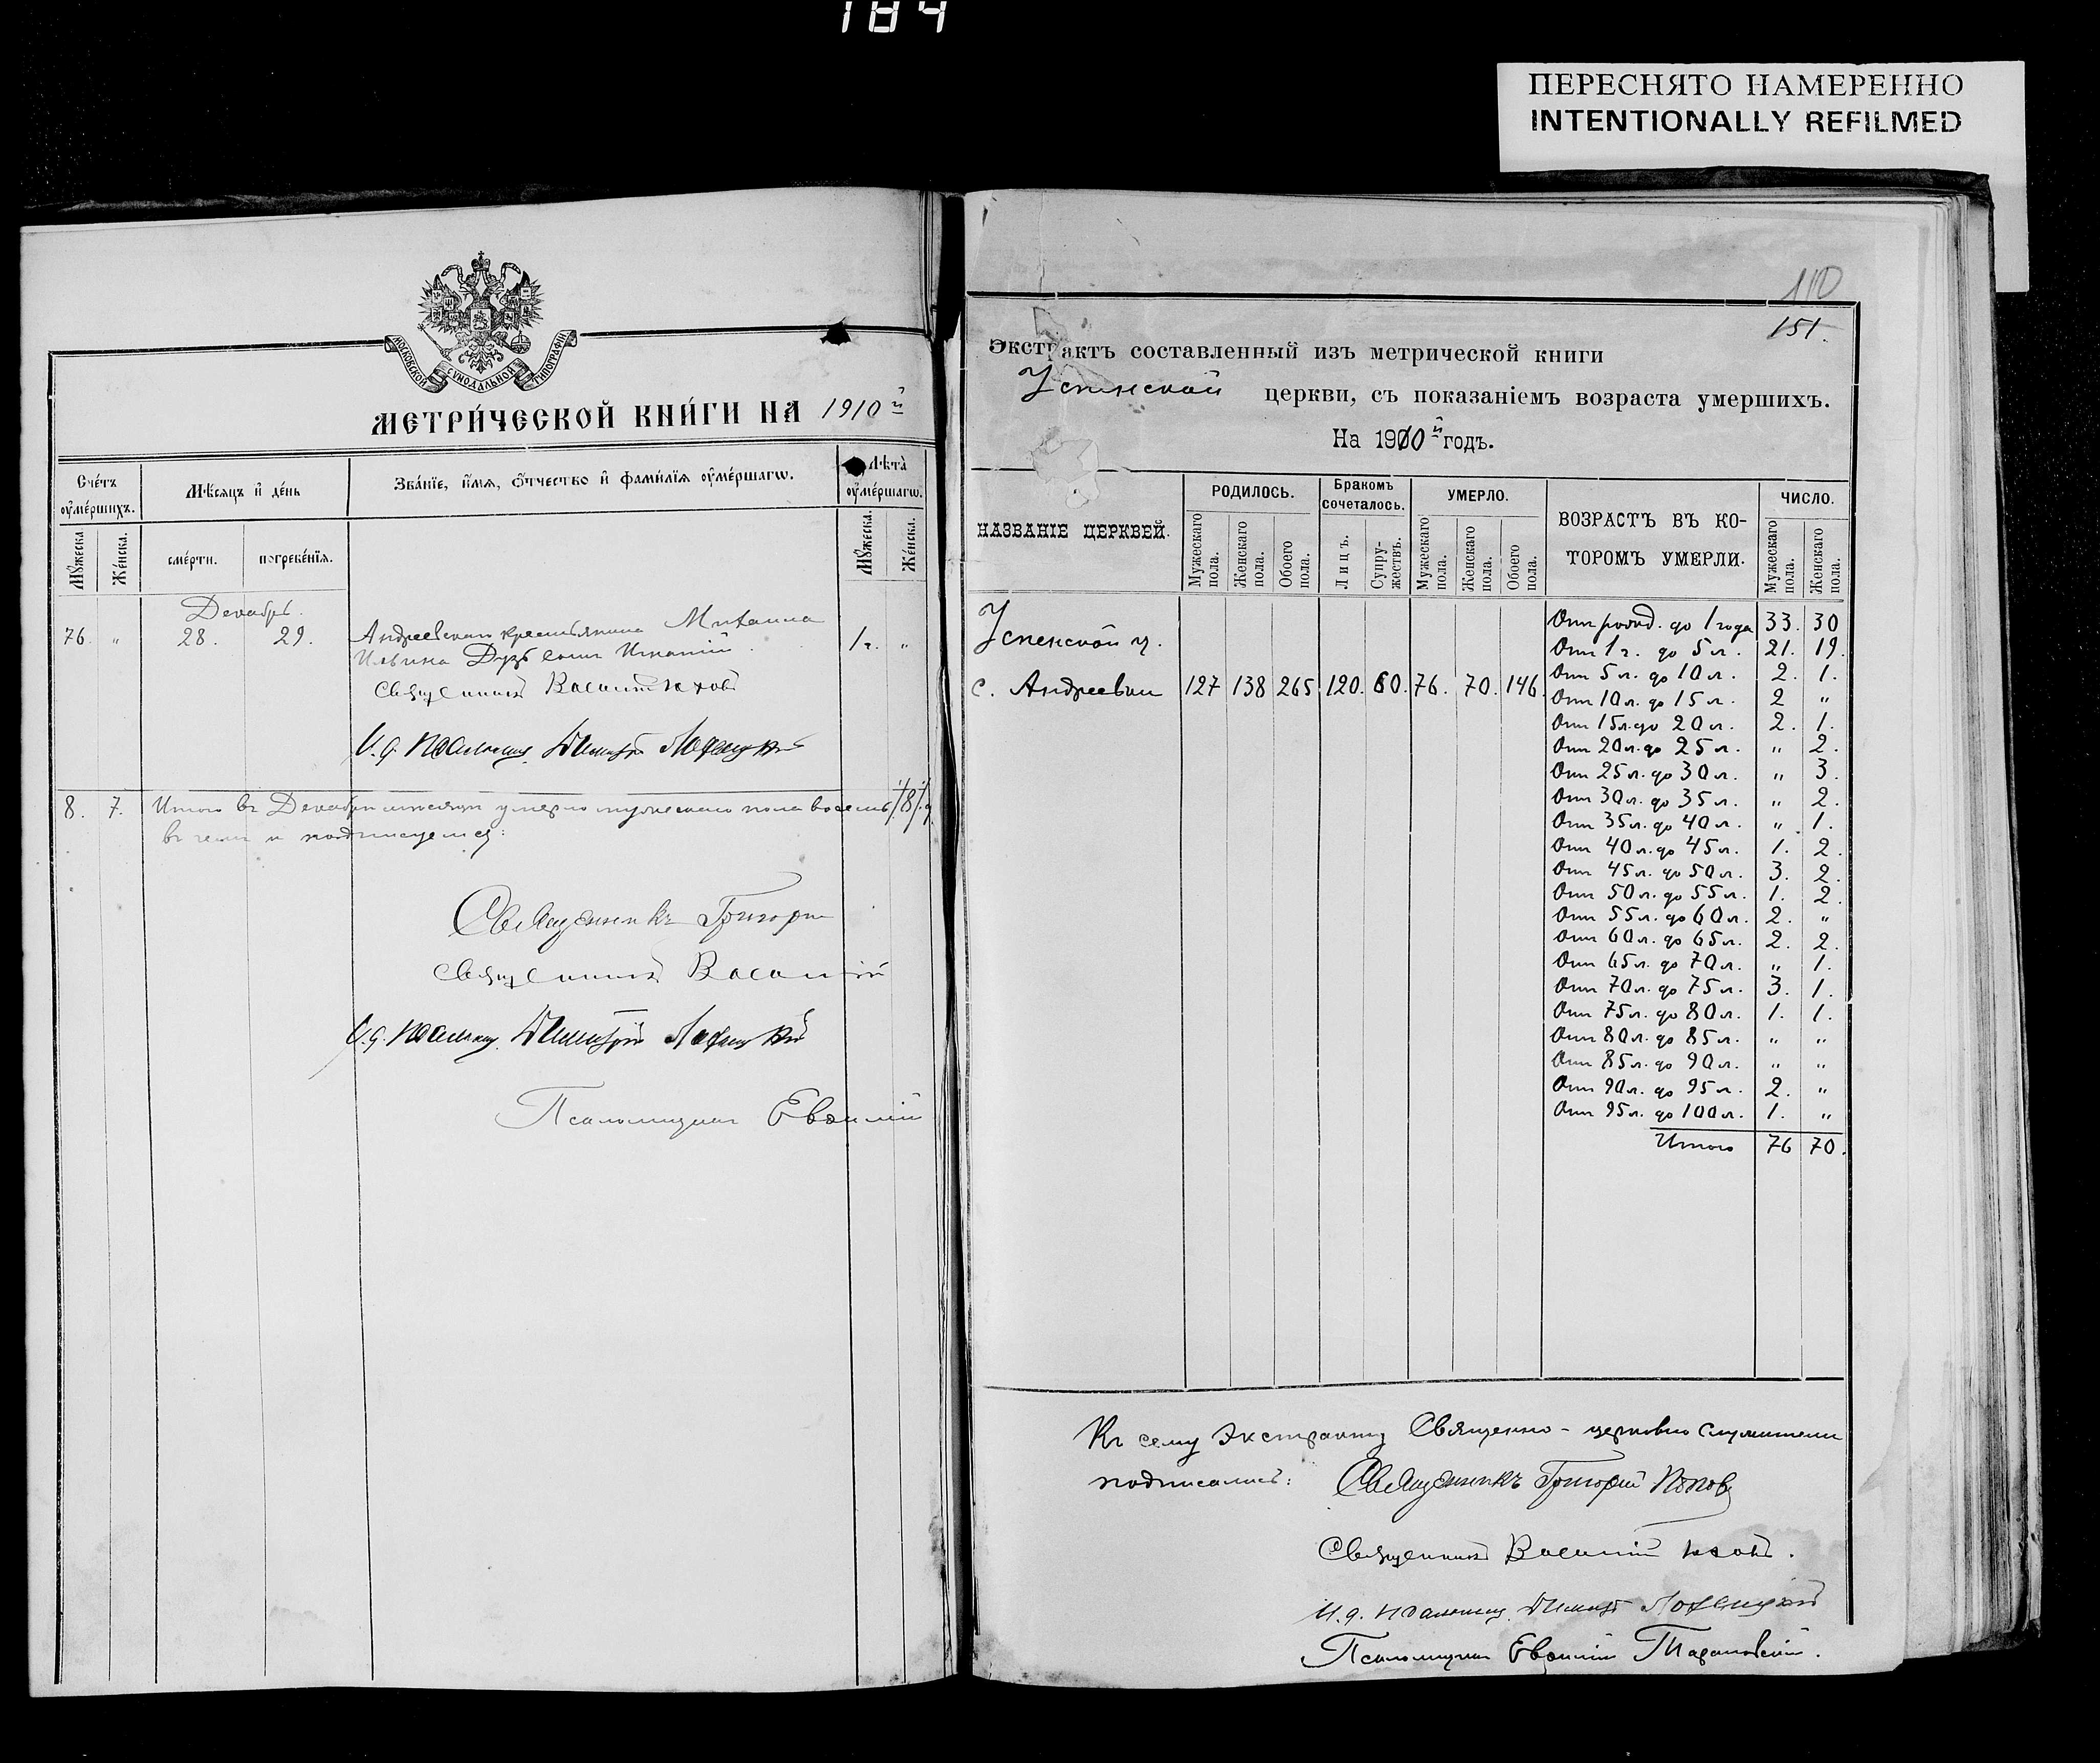 184
ПЕРЕСНЯТО НАМЕРЕННО
INTENTIONALLY REFILMED
МОСКОВСКОЙ СУНОДАЛЬНОЙ ТИПОГРАФІИ
МЕТРИ́ЧЕСКОЙ КНИ́ГИ НА 1910й
Сче́тъ оу҆ме́ршихъ.
Мѣ́сяцъ и҆ де́нь
Зва́нїе, и҆́мя, ѻ҆́тчество и҆ фами́лїя оу҆ме́ршагѡ.
Лѣта̀ оу҆ме́ршагѡ.
Мꙋ́жеска.
Же́нска.
сме́рти.
погребе́нїя.
Мꙋ́жеска.
Же́нска.
Декабрь.
76. " 28. 29. Андреевскаго крестьянина Михаила 1 г. "
Ильина сынъ Игнатій.
Священникъ Василій
И. д. псаломщ. Димитрій
8. 7. Итого въ Декабрѣ мѣсяцѣ умерло мужескаго пола восемь /8/
въ чемъ и подписуемся:
Священникъ Григорій
Священникъ Василій
И. д. псаломщ. Димитрій
Псаломщикъ
110
151.
Экстрактъ составленный изъ метрической книги
Успенской церкви, съ показаніемъ возраста умершихъ.
На 1910й годъ.
НАЗВАНІЕ ЦЕРКВЕЙ.
РОДИЛОСЬ.
Мужескаго пола.
Женскаго пола.
Обоего пола.
Бракомъ сочеталось.
Лицъ.
Супружествъ.
УМЕРЛО.
Мужескаго пола.
Женскаго пола.
Обоего пола.
ВОЗРАСТЪ ВЪ КО-
ТОРОМЪ УМЕРЛИ.
ЧИСЛО.
Мужескаго пола.
Женскаго пола.
Успенской ц.
с. Андреевки 127 138 265 120. 60. 76. 70. 146.
Отъ рожд. до 1 года 33. 30
Отъ 1 г. до 5 л. 21. 19.
Отъ 5 л. до 10 л. 2. 1.
Отъ 10 л. до 15 л. 2 "
Отъ 15 л. до 20 л. 2. 1.
Отъ 20 л. до 25 л. " 2.
Отъ 25 л. до 30 л. " 3.
Отъ 30 л. до 35 л. " 2.
Отъ 35 л. до 40 л. " 1.
Отъ 40 л. до 45 л. 1. 2.
Отъ 45 л. до 50 л. 3. 2.
Отъ 50 л. до 55 л. 1. 2.
Отъ 55 л. до 60 л. 2. "
Отъ 60 л. до 65 л. 2. 2.
Отъ 65 л. до 70 л. " 1.
Отъ 70 л. до 75 л. 3. 1.
Отъ 75 л. до 80 л. 1. 1.
Отъ 80 л. до 85 л. " "
Отъ 85 л. до 90 л. " "
Отъ 90 л. до 95 л. 2. "
Отъ 95 л. до 100 л. 1. "
Итого 76 70.
Къ сему экстракту Священно-церковно служители
подписались: Священникъ Григорій Поповъ
Священникъ Василій
И. д. псаломщ. Димитрій
Псаломщикъ Тарановскій.